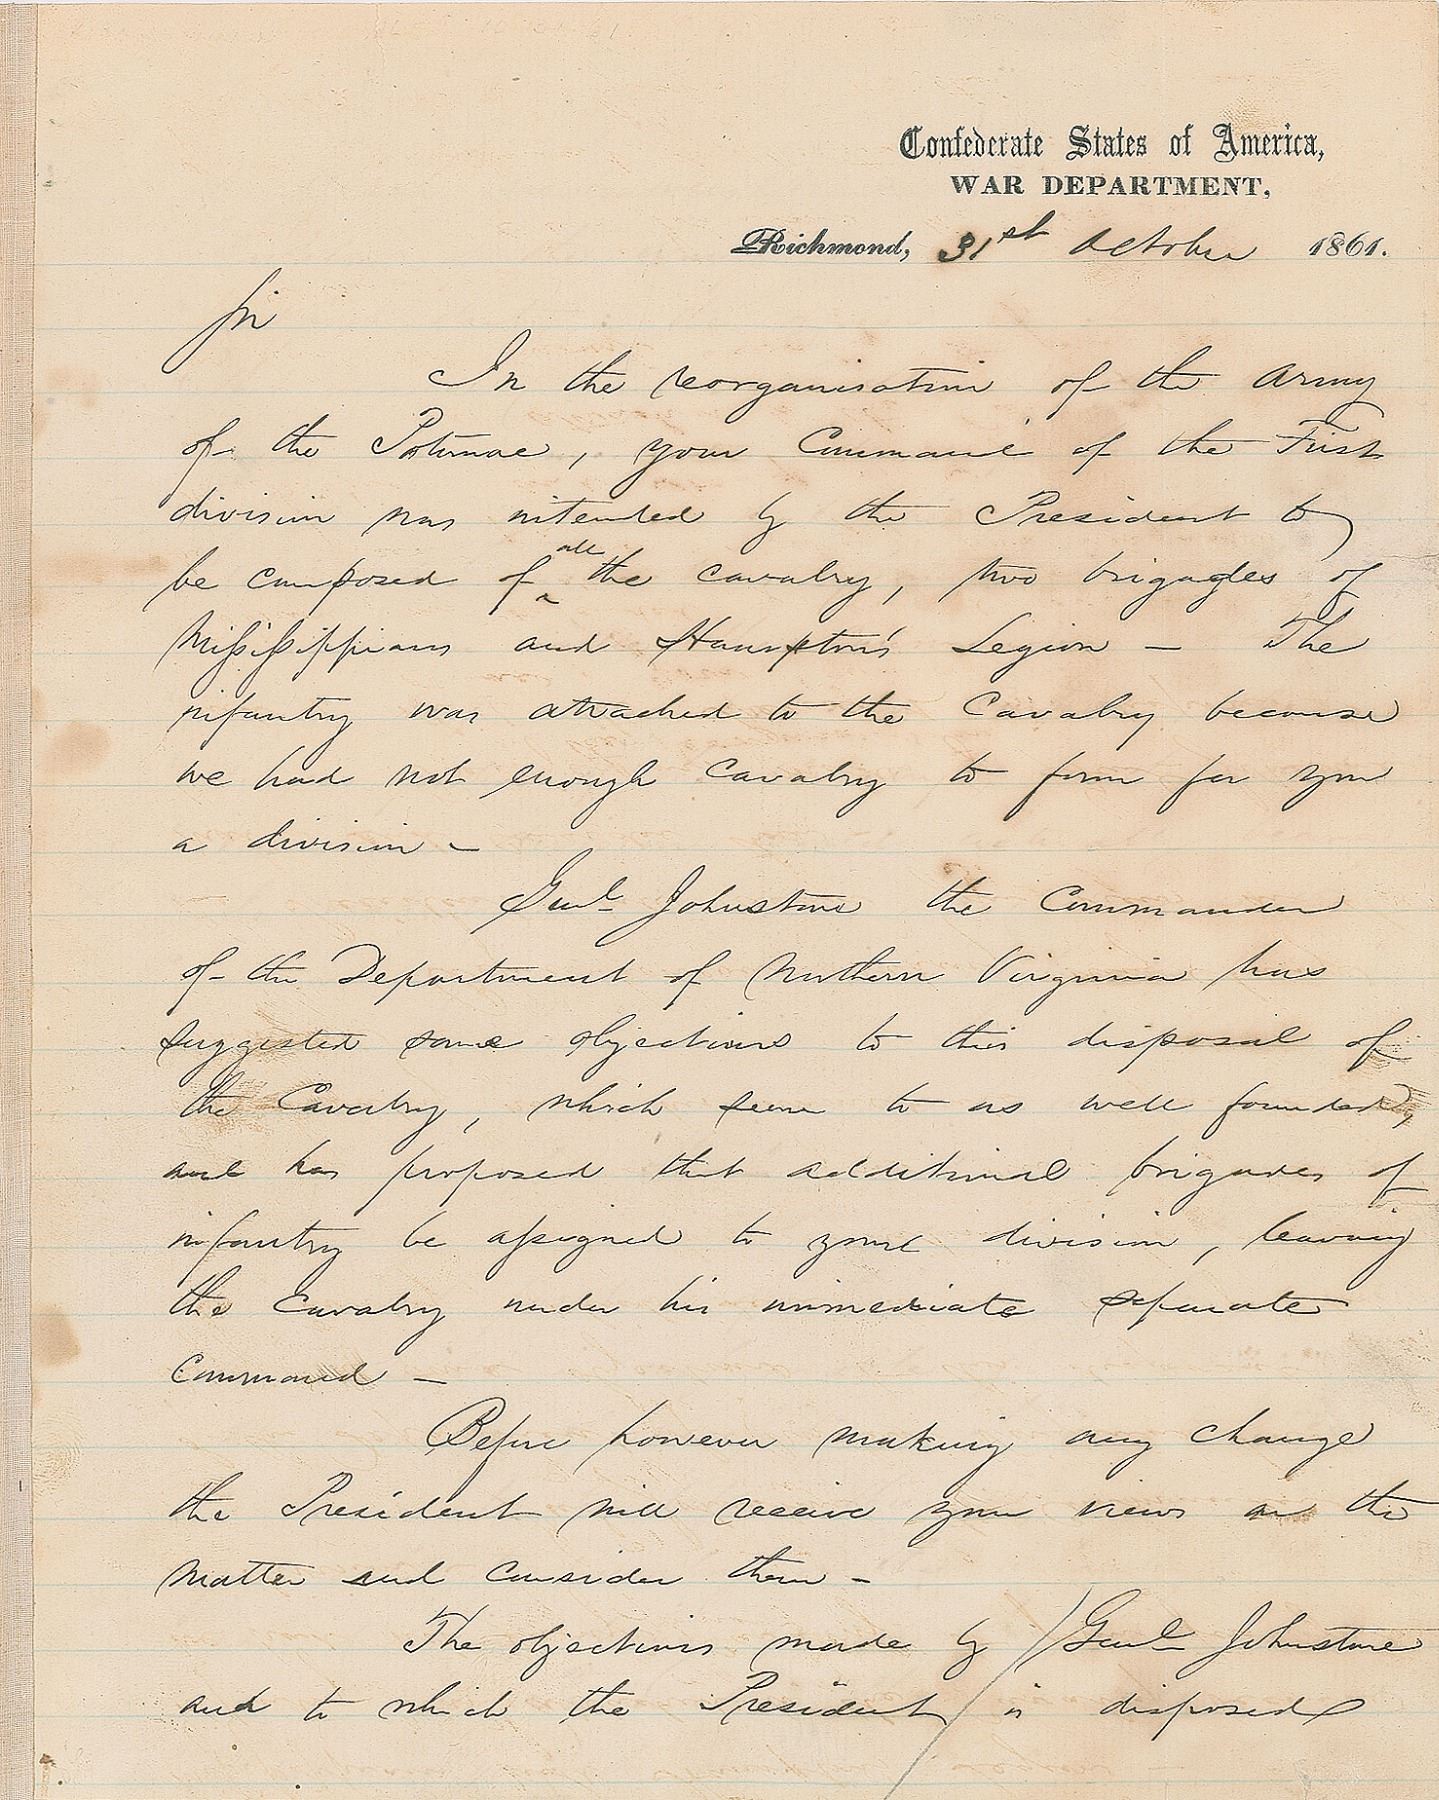 Confederate States of America,
WAR DEPARTMENT,
Richmond, 31st October 1861.
Sir
In the reorganisation of the Army
of the Potomac, your Command of the First
division was intended by the President to
be composed of all the cavalry, two brigades of
Mississippians and Hampton's Legion — The
infantry was attached to the Cavalry because
we had not enough Cavalry to form for you
a division —
Genl Johnstone the Commander
of the Department of Northern Virginia has
suggested some objections to this disposal of
the Cavalry, which seem to us well founded,
and has proposed that additional brigades of
infantry be assigned to your division, leaving
the Cavalry under his immediate separate
Command —
Before however making any change
the President will receive your views on the
matter and consider them —
The objections made by Genl Johnstone
and to which the President is disposed